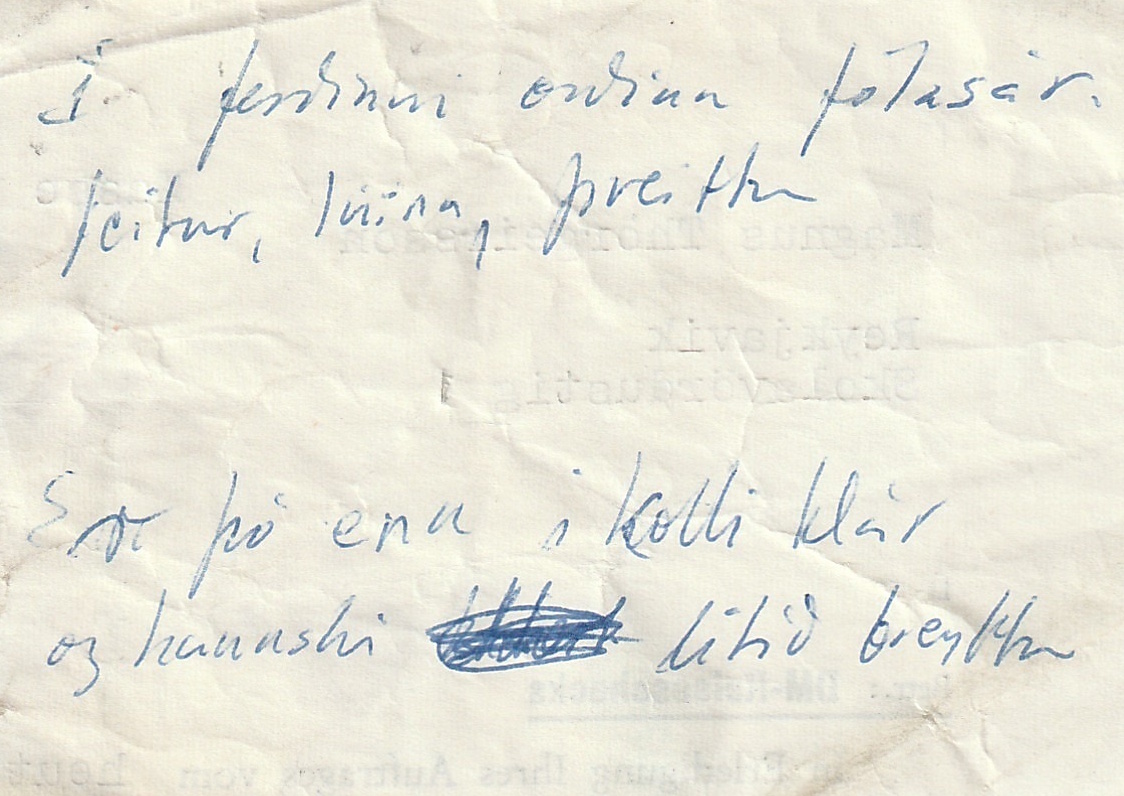 Í ferðinni orðinn fótasár.
feitur, lúinn, þreittur
Ert þó enn í kolli klár
og kannski lítið breyttur